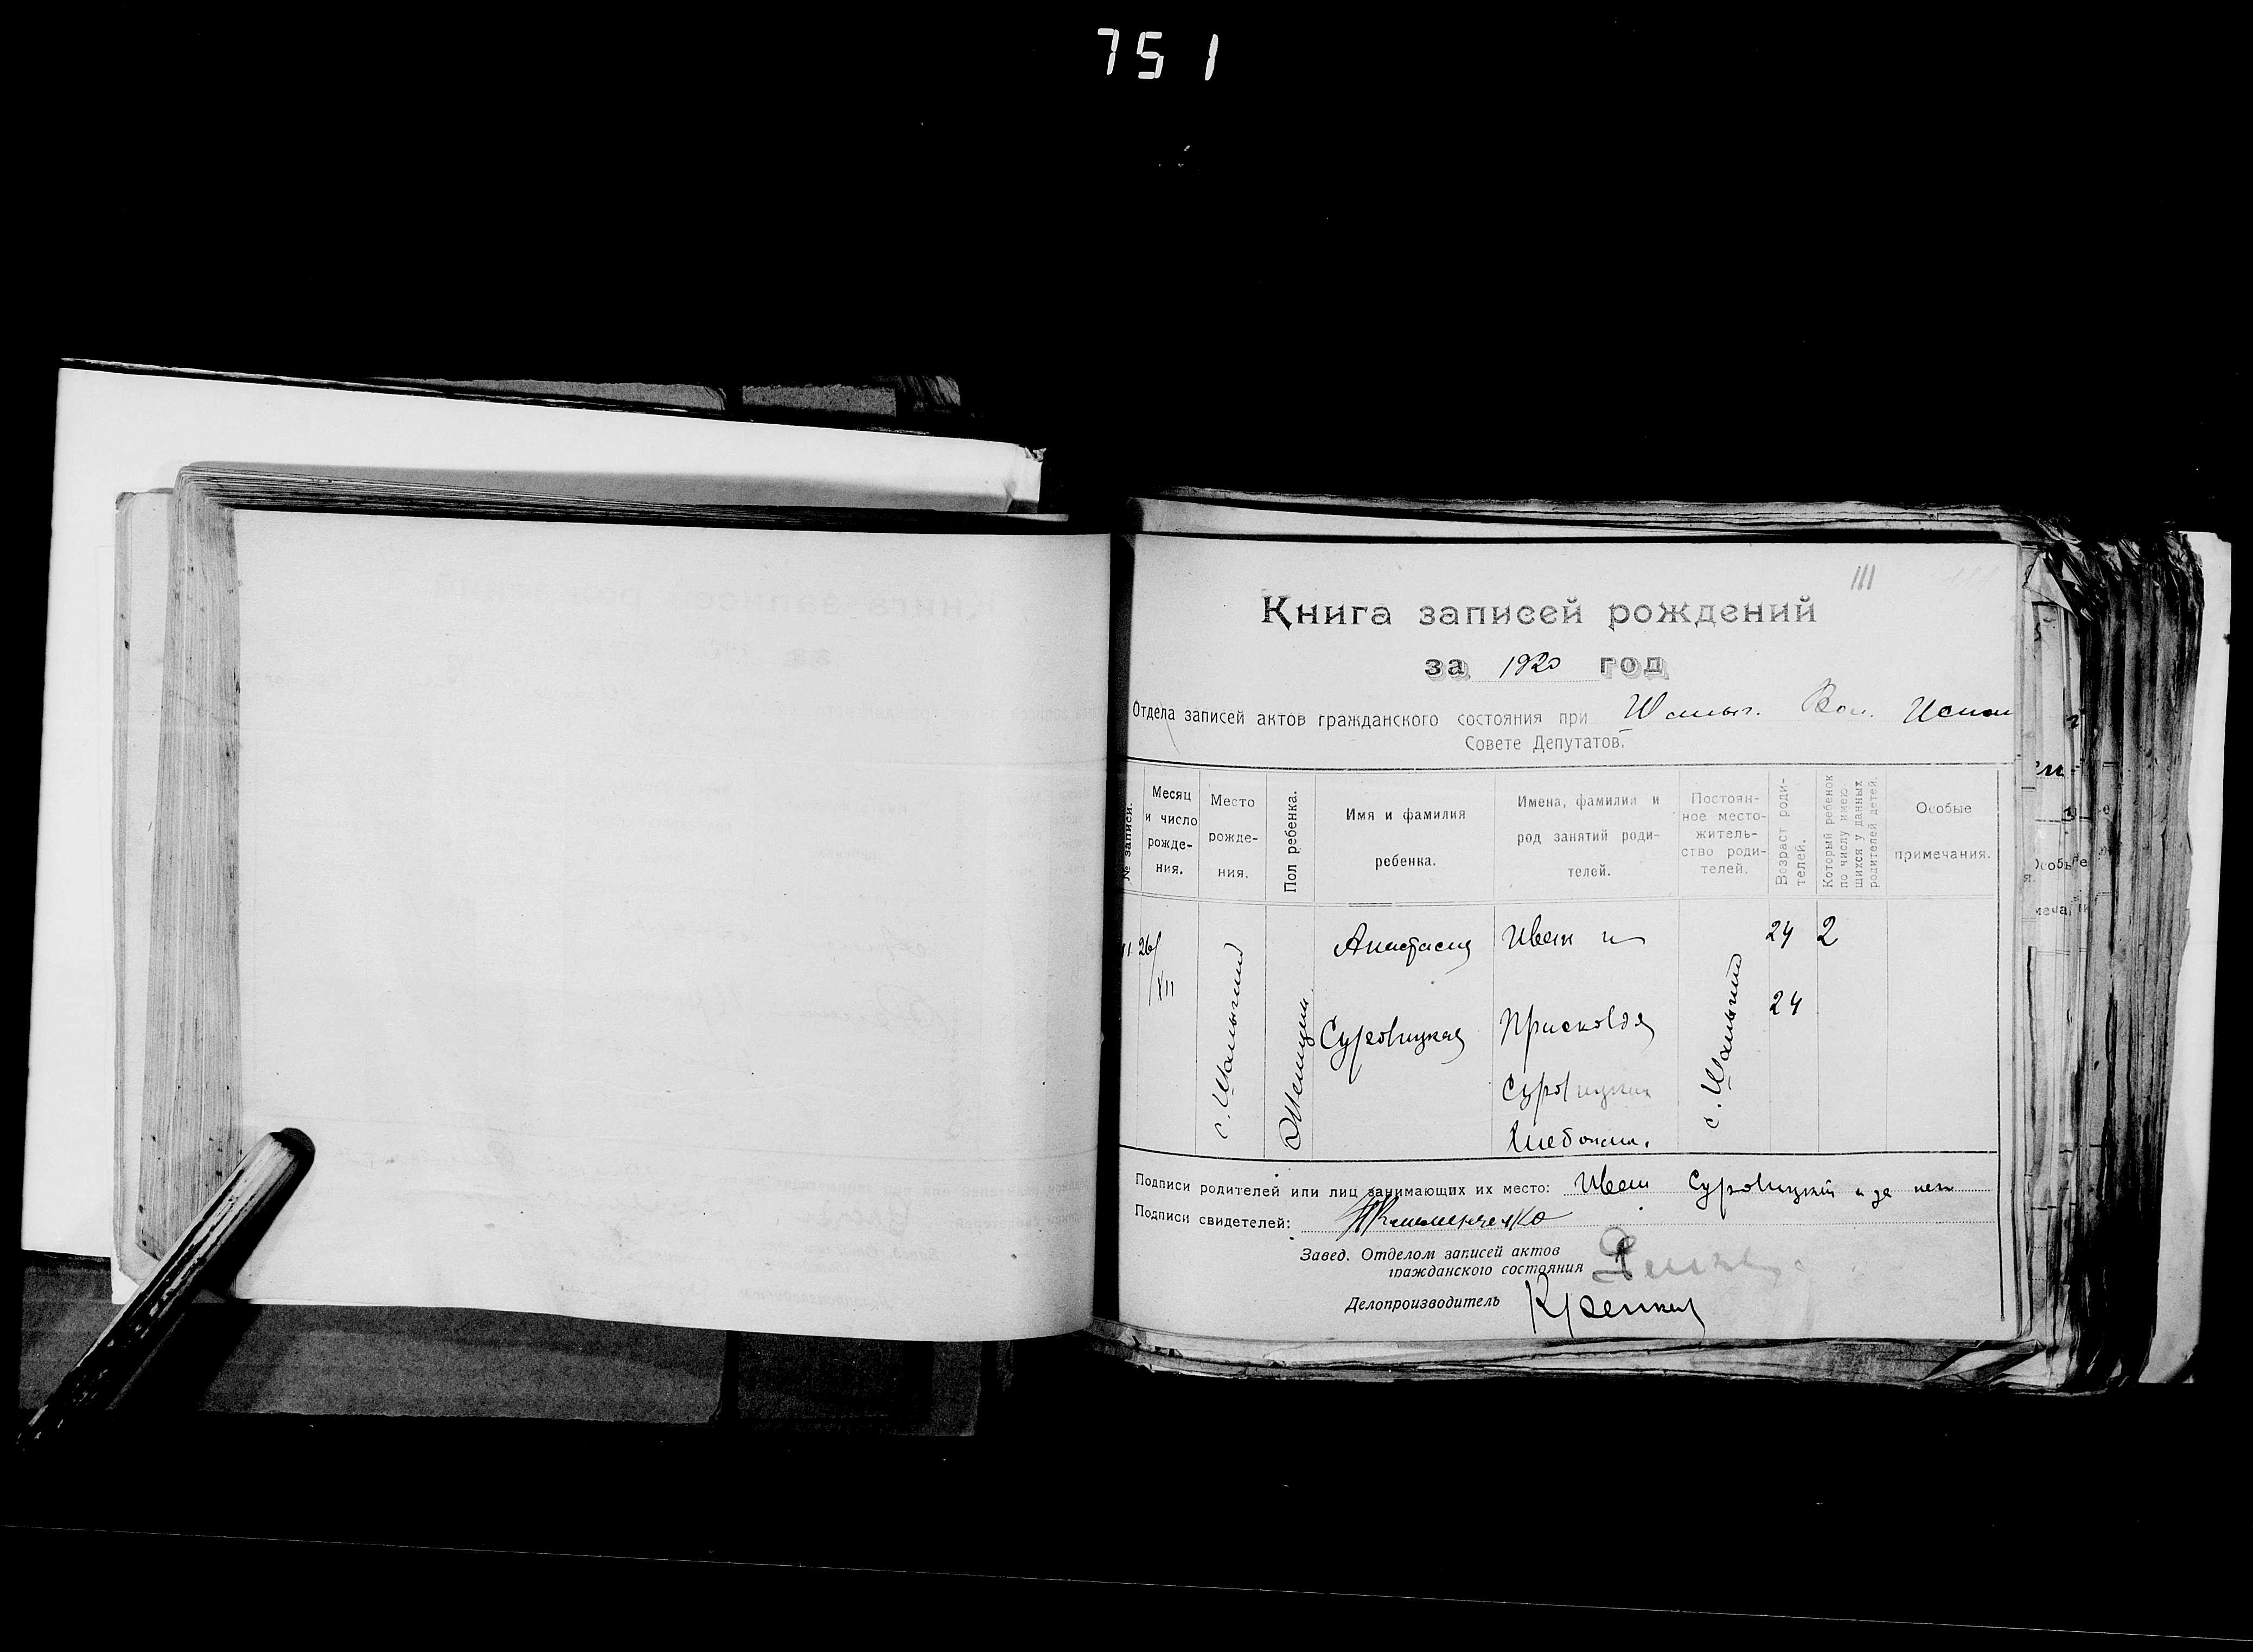 751
111
Книга записей рождений
за 1920 год
Отдела записей актов гражданского состояния при Шалыг. Вол. Испол
Совете Депутатов.
№ записи.
Месяц и число рожде-ния.
Место рожде-ния.
Пол ребенка.
Имя и фамилия ребенка.
Имена, фамилии и род занятий роди-телей.
Постоян-ное место-житель-ство роди-телей.
Возраст роди-телей.
Который ребенок по числу имею-щихся у данных родителей детей.
Особые примечания.
26/XII
с. Шалыгино
Женщина
Анастасия
Суровицкая
Иван и
Присковья
Суровицкие
Хлебопаш.
с. Шалыгино
24
24
2
Подписи родителей или лиц занимающих их место: Иван Суровицкий и за нег
Подписи свидетелей:
Завед. Отделом записей актов
гражданского состояния
Делопроизводитель